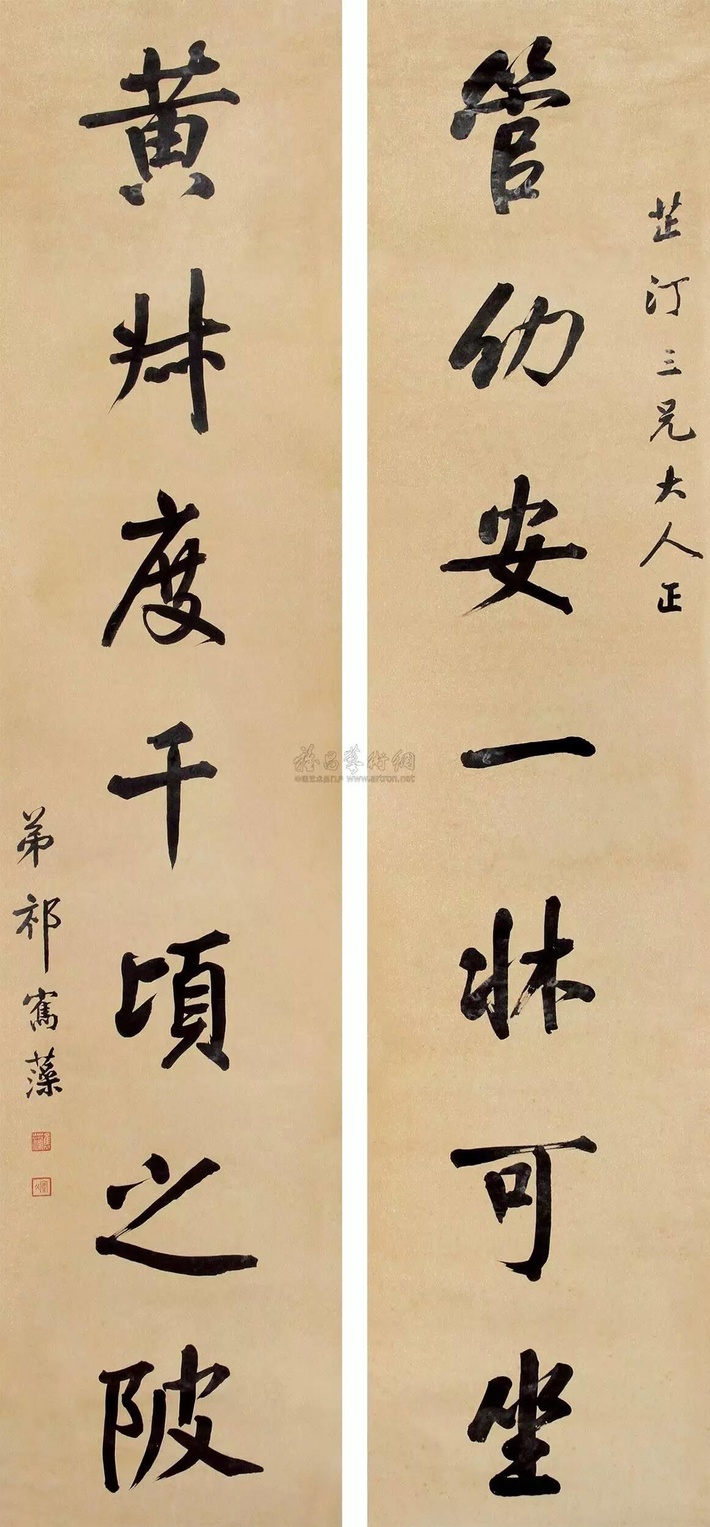 芷汀三兄大人正
管幼安一牀可坐
黄叔度千頃之陂
弟祁寯藻
雅昌藝術網
www.artron.net